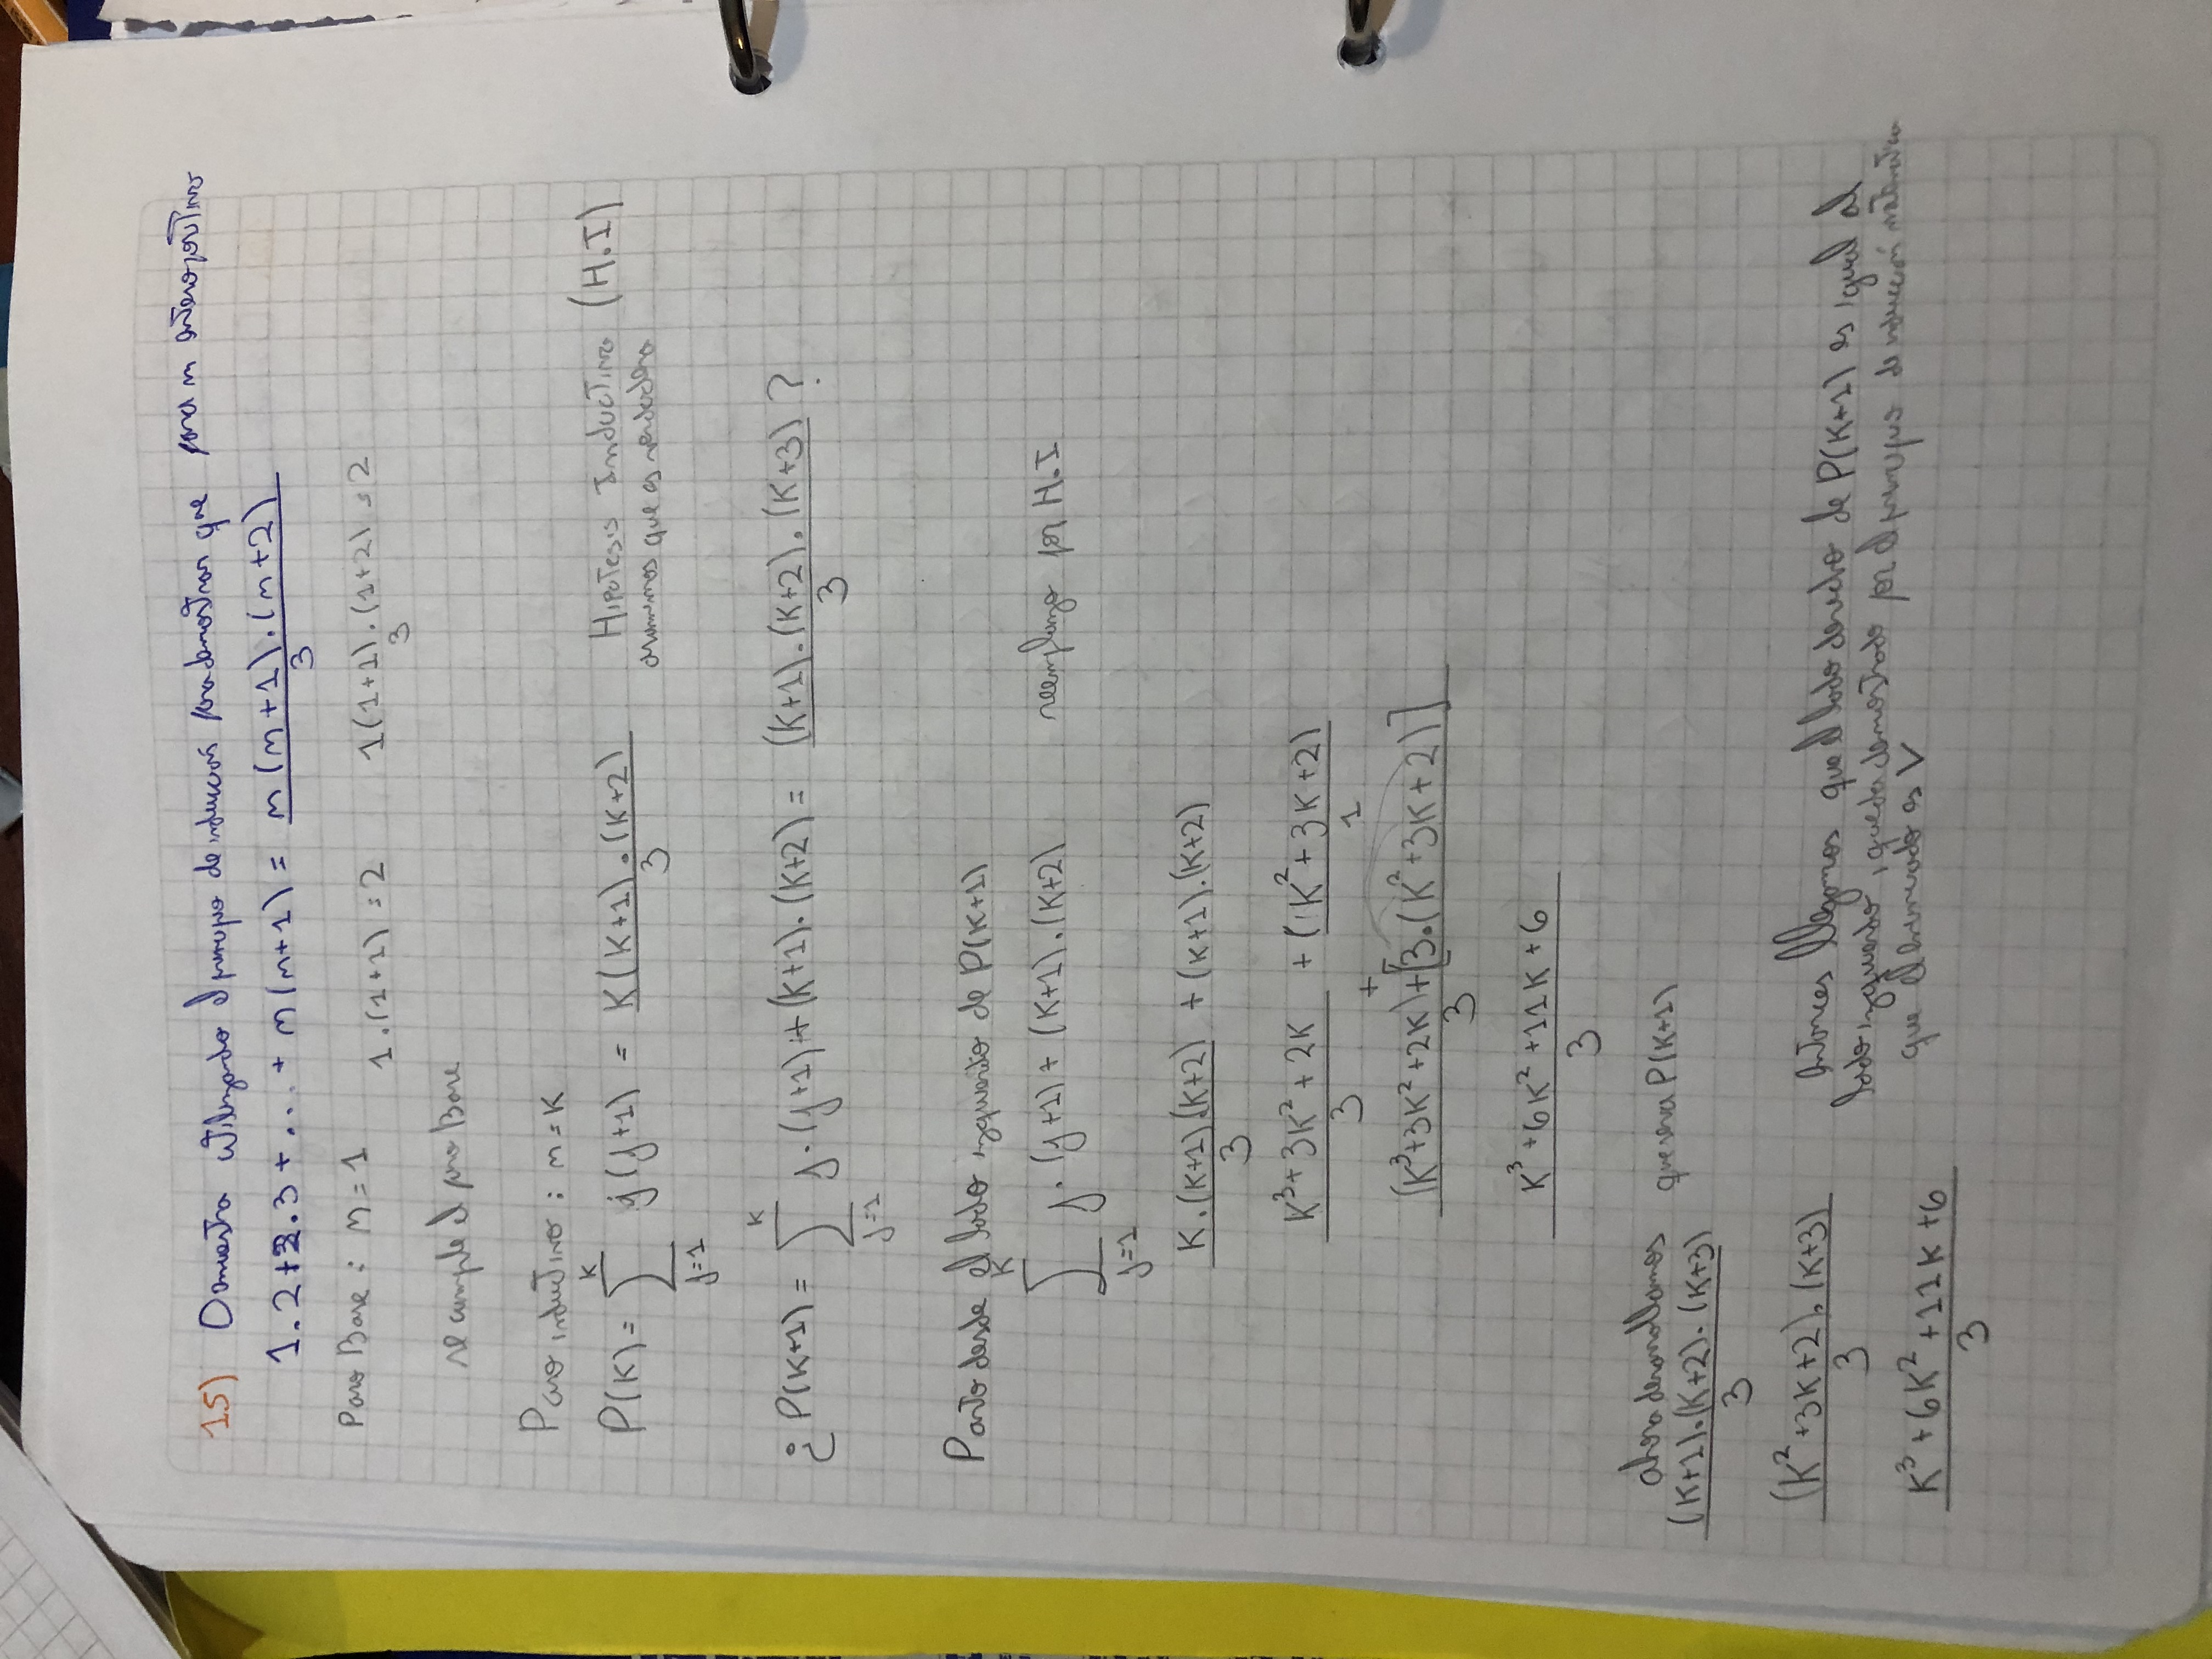 15) Demuestra utilizando el principio de inducción para demostrar que para n entero positivo
1.2+2.3+...+ n(n+1) = n(n+1).(n+2)/3
Paso Base: n=1 1.(1+1) = 2 1(1+1).(1+2)/3 = 2
se cumple el paso Base
Paso inductivo: n=K
P(K)= ∑_{j=1}^{K} j(j+1) = K(K+1).(K+2)/3 Hipotesis Inductiva (H.I)
asumimos que es verdadera
¿P(K+1) = ∑_{j=1}^{K} j.(j+1)+(K+1).(K+2) = (K+1).(K+2).(K+3)/3 ?
Parto desde el lado izquierdo de P(K+1)
∑_{j=1}^{K} j.(j+1)+(K+1).(K+2) reemplazo por H.I
K.(K+1).(K+2)/3 + (K+1).(K+2)
K³+3K²+2K/3 + (K²+3K+2)/1
+
(K³+3K²+2K)+[3.(K²+3K+2)]/3
K³+6K²+11K+6/3
ahora desarrollamos que sera P(K+1)
(K+1).(K+2).(K+3)/3
(K²+3K+2).(K+3)/3
K³+6K²+11K+6/3
Entonces llegamos que el lado derecho de P(K+1) es igual al
lado izquierdo, queda demostrado por el principio de inducción matematica
que el enunciado es V